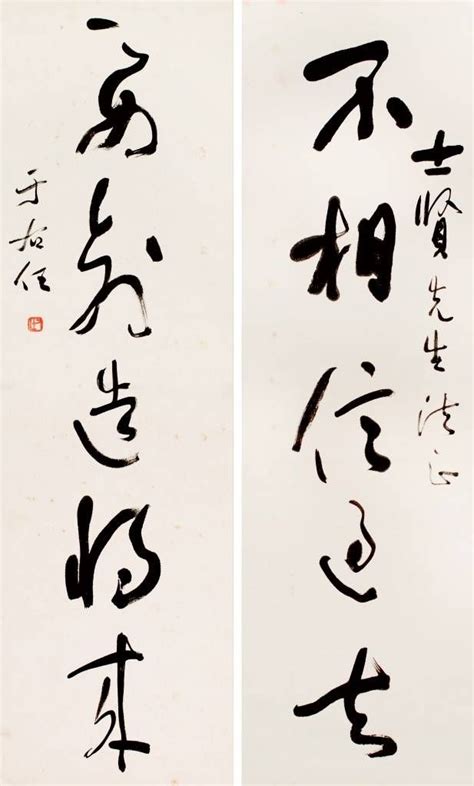 士賢先生法正
不相信過去
要創造將來
于右任